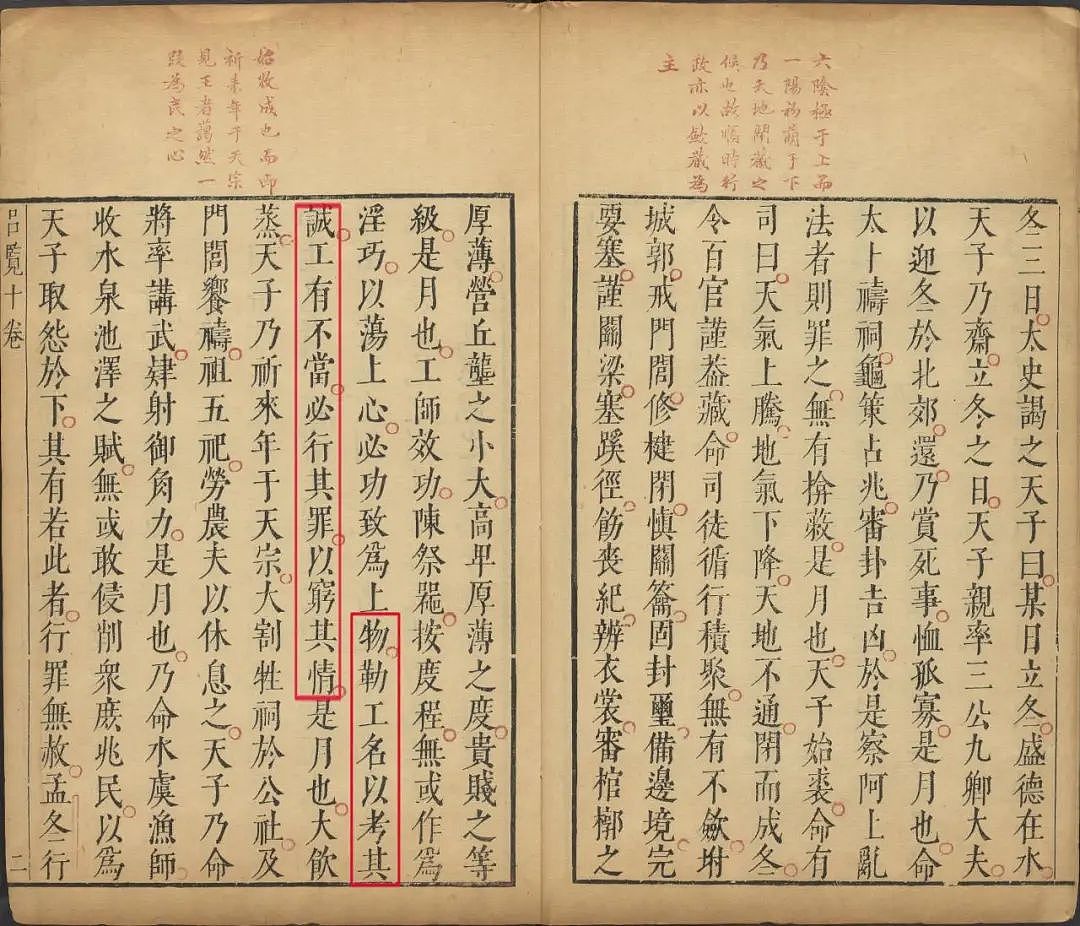 六陰極于上而
一陽初萌于下
乃天地閉藏之
候也故順時行
政亦以斂藏為
主
冬三日太史謁之天子曰某日立冬盛德在水
天子乃齋立冬之日天子親率三公九卿大夫
以迎冬於北郊還乃賞死事恤孤寡是月也命
太卜禱祠龜策占兆審卦吉凶於是察阿上亂
法者則罪之無有揜蔽是月也天子始裘命有
司曰天氣上騰地氣下降天地不通閉而成冬
令百官謹葢藏命司徒循行積聚無有不斂坿
城郭戒門閭修楗閉慎關籥固封璽備邊境完
要塞謹關梁塞蹊徑飭喪紀辨衣裳審棺槨之
始收成也而即
祈来年于天宗
見王者藹然一
段為民之心
厚薄營丘壟之小大高卑厚薄之度貴賤之等
級是月也工師效功陳祭器按度程無或作為
淫巧以蕩上心必功致為上物勒工名以考其
誠工有不當必行其罪以窮其情是月也大飲
蒸天子乃祈來年于天宗大割牲祠於公社及
門閭饗禱祖五祀勞農夫以休息之天子乃命
將率講武肄射御角力是月也乃命水虞漁師
收水泉池澤之賦無或敢侵削衆庶兆民以為
天子取怨於下其有若此者行罪無赦孟冬行
呂覽十卷
二